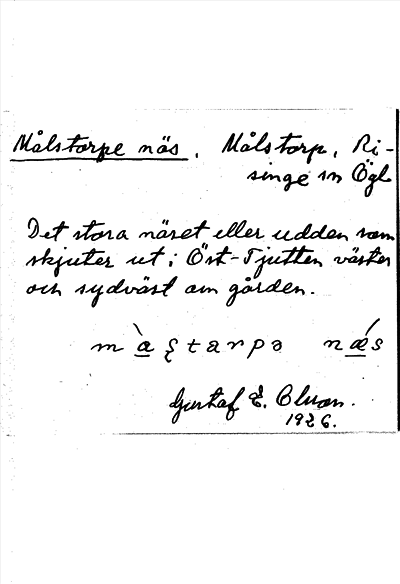 Målstorpe näs. Målstorp, Ri-
singe sn Ögl.
Det stora näset eller udden som
skjuter ut i Öst-Tjutten väster
och sydväst om gården.
Gustaf E.
1926.